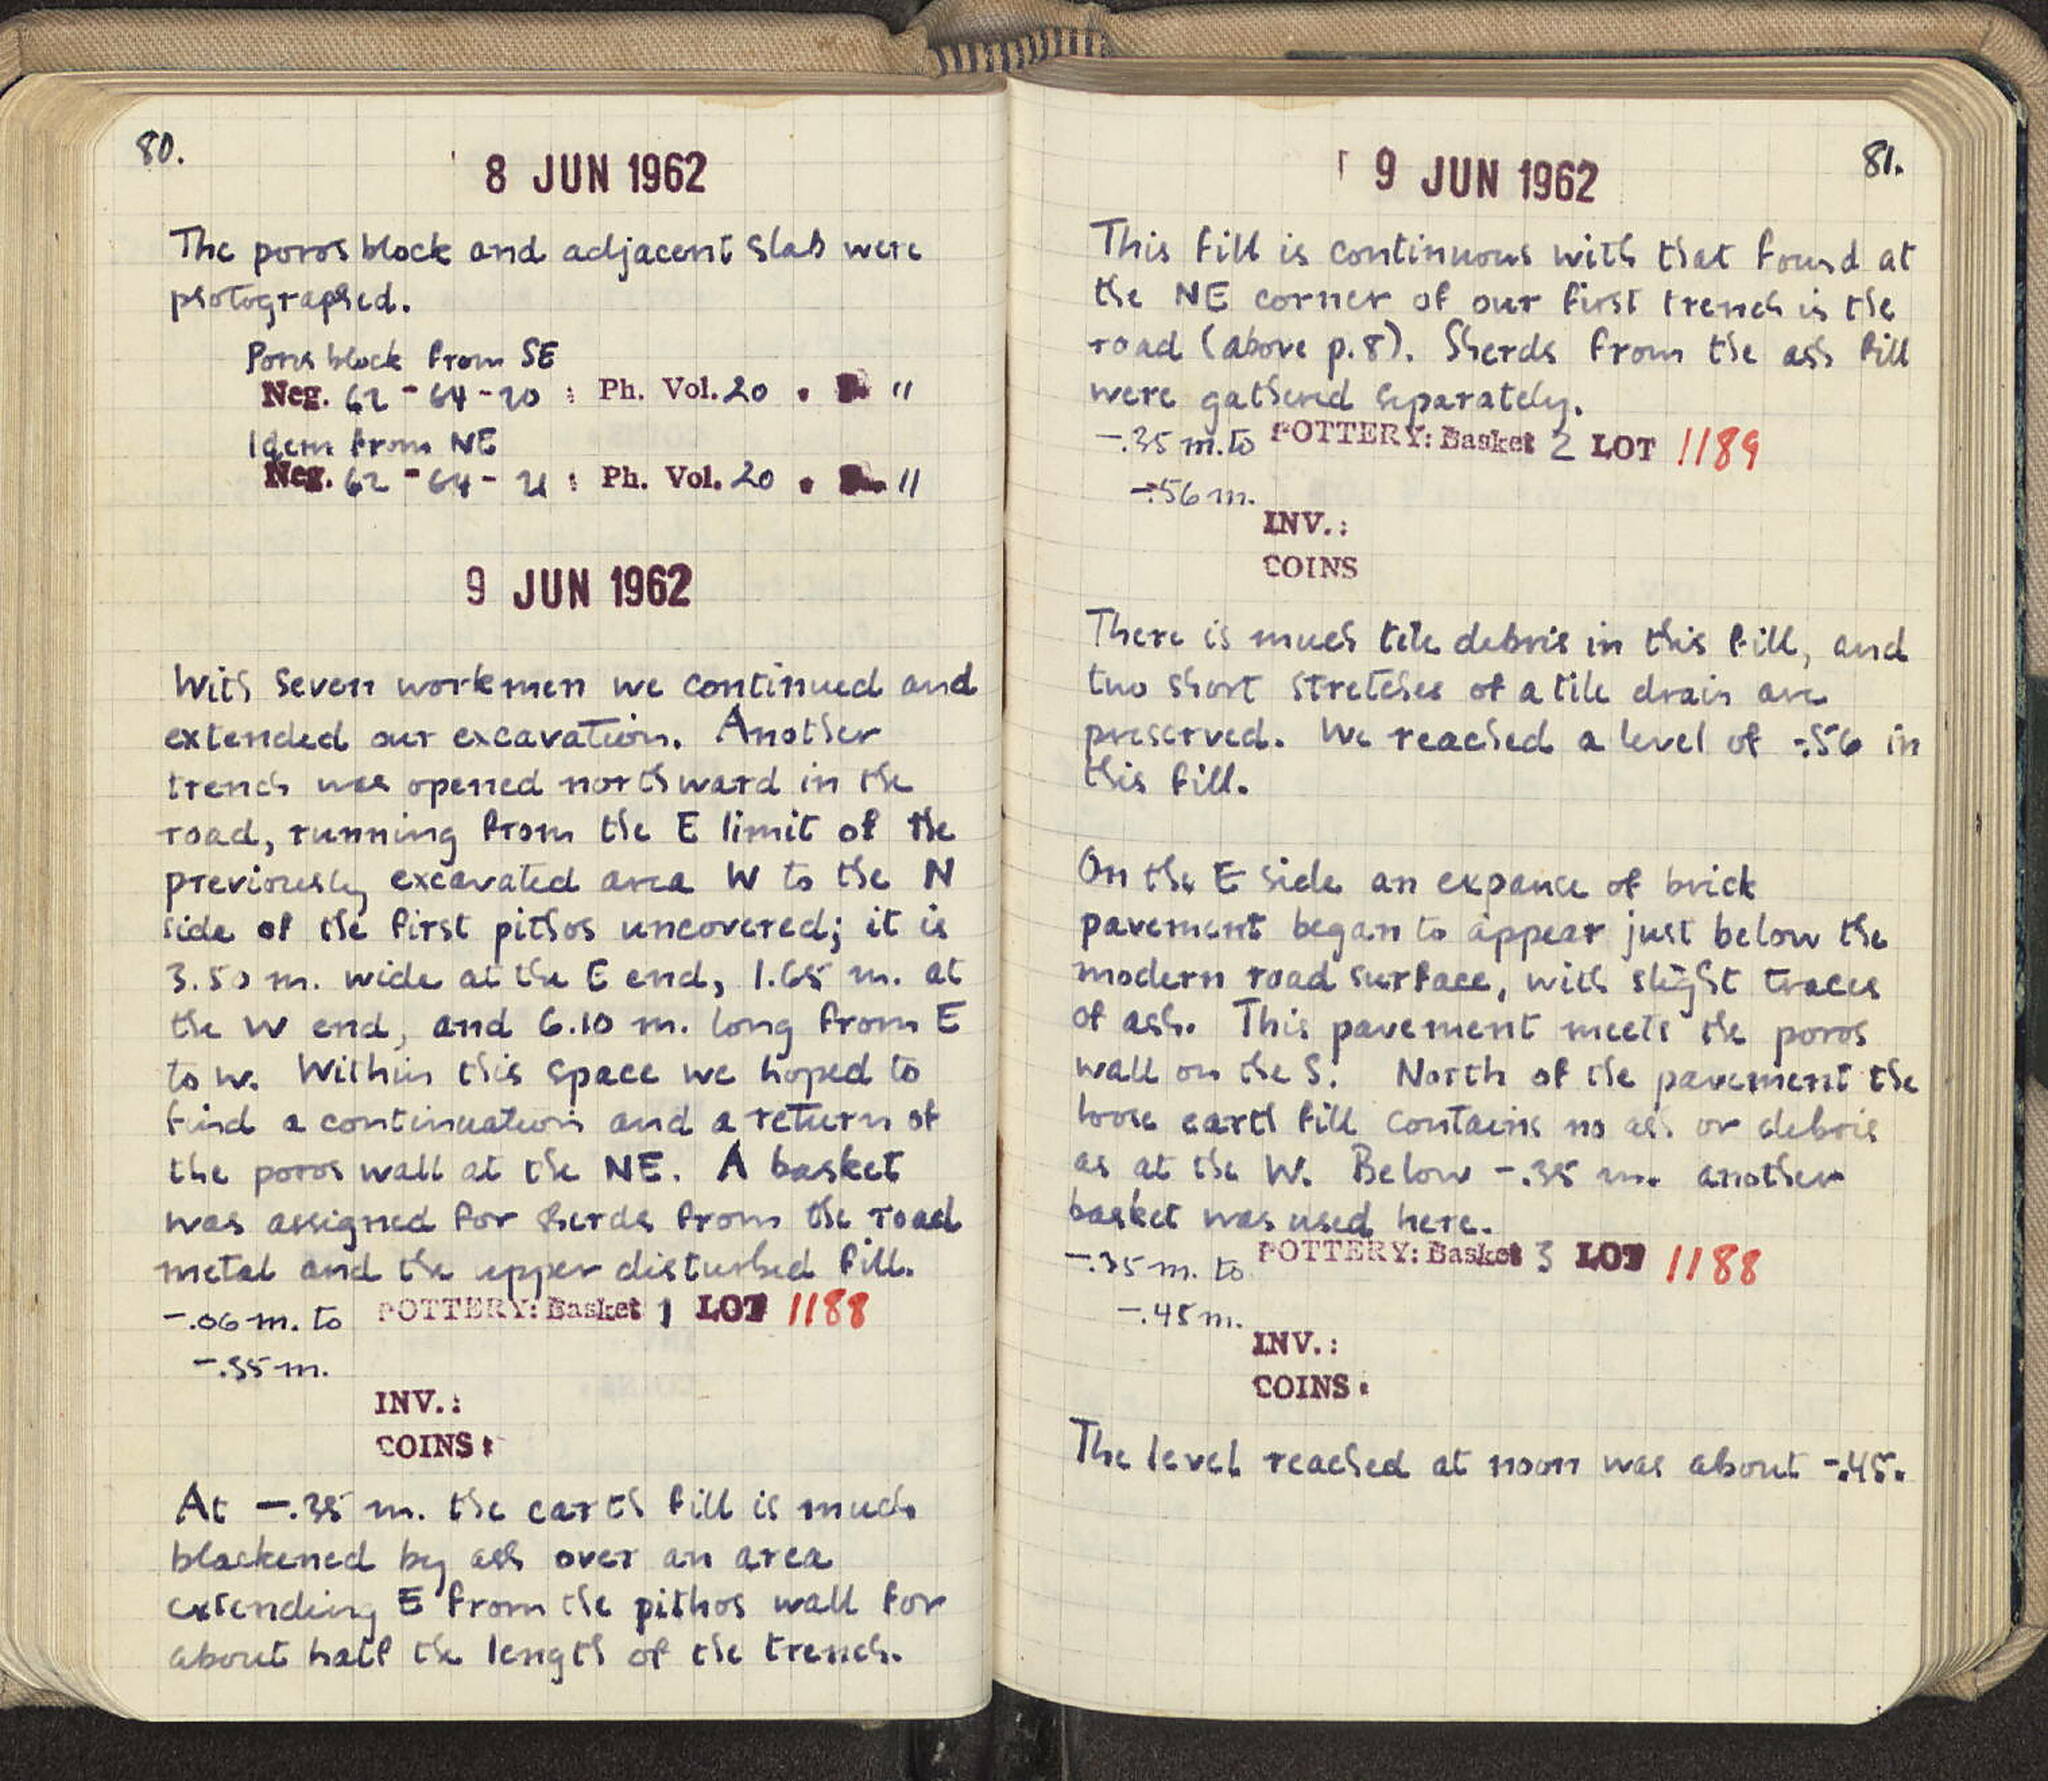 80.
8 JUN 1962
The poros block and adjacent slab were
photographed.
Poros block from SE
Neg. 62-64-20 : Ph. Vol. 20 . "
Idem from NE
Neg. 62-64-21 : Ph. Vol. 20 . "
9 JUN 1962
With seven workmen we continued and
extended our excavation. Another
trench was opened northward in the
road, running from the E limit of the
previously excavated area W to the N
side of the first pithos uncovered; it is
3.50 m. wide at the E end, 1.65 m. at
the W end, and 6.10 m. long from E
to W. Within this space we hoped to
find a continuation and a return of
the poros wall at the NE. A basket
was assigned for sherds from the road
metal and the upper disturbed fill.
-.06 m. to POTTERY: Basket 1 LOT 1188
-.35 m.
INV.:
COINS:
At -.35 m. the earth fill is much
blackened by ash over an area
extending E from the pithos wall for
about half the length of the trench.
81.
9 JUN 1962
This fill is continuous with that found at
the NE corner of our first trench in the
road (above p.8). Sherds from the ash fill
were gathered separately.
-.35 m. to POTTERY: Basket 2 LOT 1189
-.56 m.
INV.:
COINS
There is much tile debris in this fill, and
two short stretches of a tile drain are
preserved. We reached a level of -.56 in
this fill.
On the E side an expance of brick
pavement began to appear just below the
modern road surface, with slight traces
of ash. This pavement meets the poros
wall on the S. North of the pavement the
loose earth fill contains no ash or debris
as at the W. Below -.35 m. another
basket was used here.
-.35 m. to POTTERY: Basket 3 LOT 1188
-.45 m.
INV.:
COINS.
The level reached at noon was about -.45.